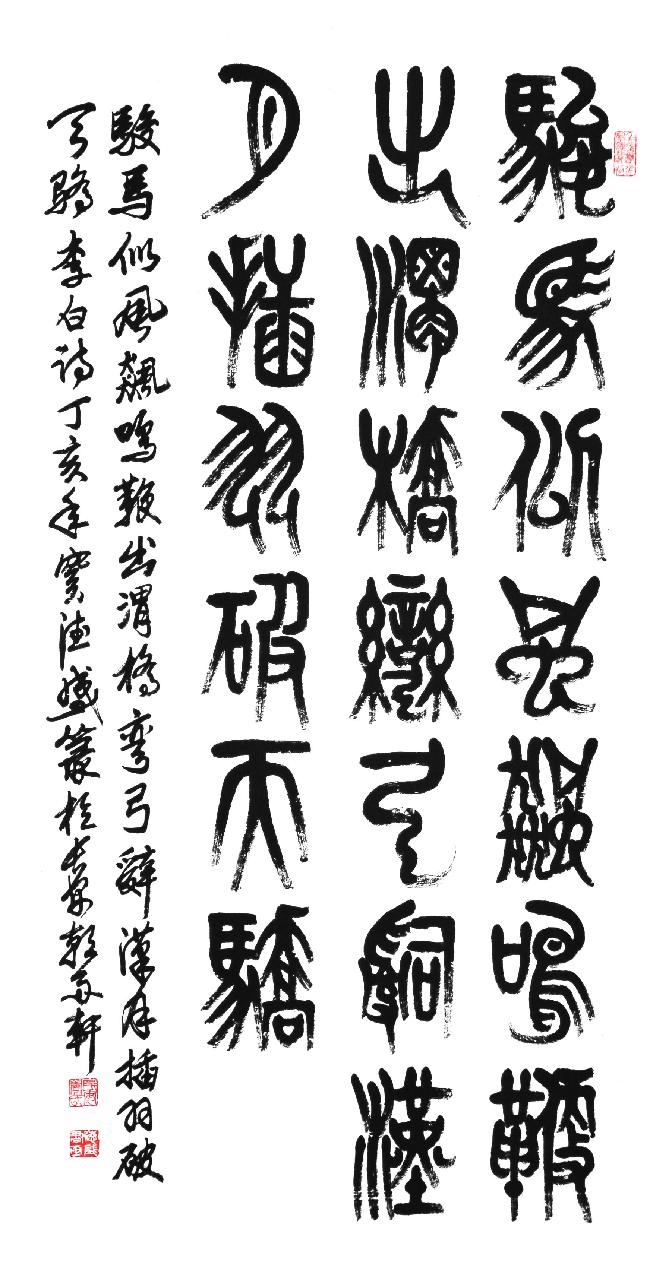 駿馬似風飆鳴鞭
出渭橋彎弓辭漢
月插羽破天驕
駿馬似風飆鳴鞭出渭橋彎弓辭漢月插羽破
天驕李白詩丁亥年寶德盛篆於長安